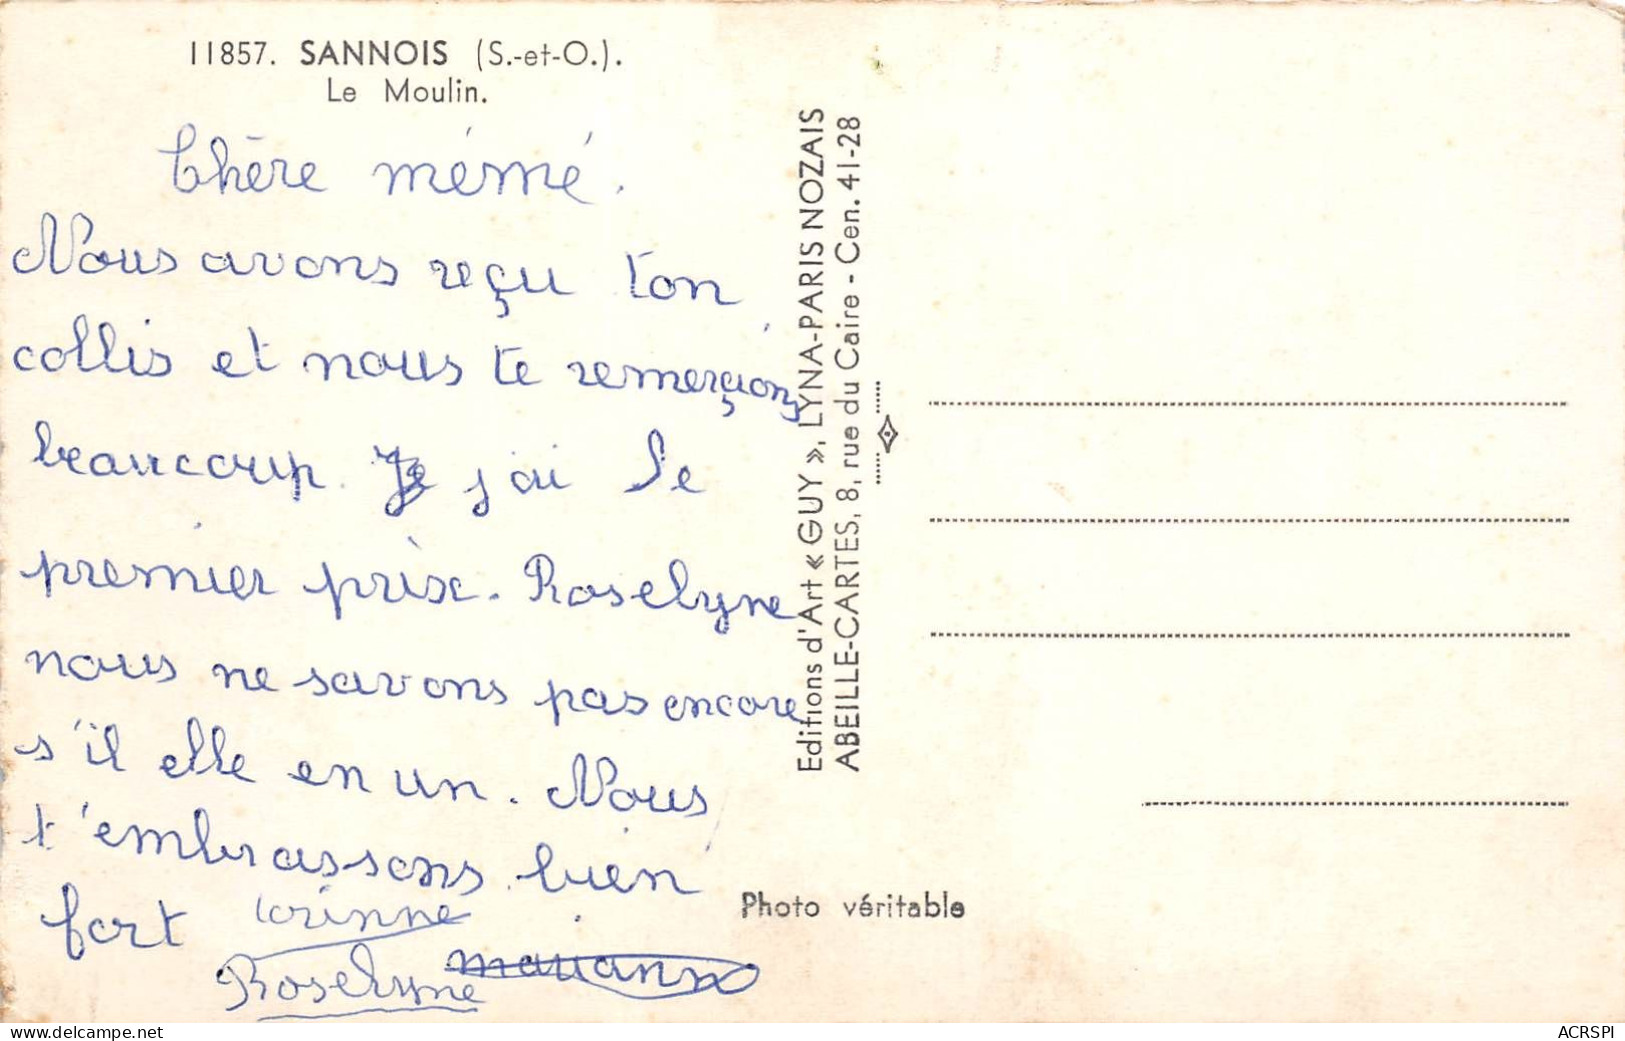 11857. SANNOIS (S.-et-O.).
Le Moulin.
Chère mémé.
Nous avons reçu ton
collis et nous te remerçions
beaucoup. Je j'ai le
premier prix. Roselyne
nous ne savons pas encore
s'il elle en un. Nous
t'embrassons bien
fort Corinne
Roselyne
Editions d'Art « GUY », LYNA-PARIS NOZAIS
ABEILLE-CARTES, 8, rue du Caire - Cen. 41-28
Photo véritable
www.delcampe.net
ACRSPI